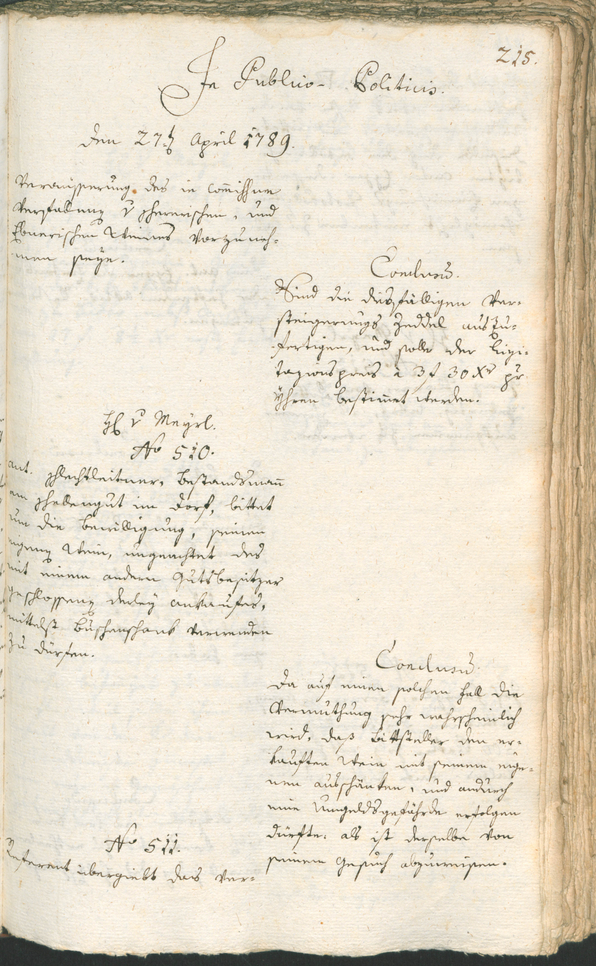 215.
In Publico-Politicis.
den 27ten April 1789.
Veräusserung des in Commissione
Verstabung v pherrischen, und
Ebnerischen Weines vorzuneh-
men seye.
Conclusum.
Sind die diesfälligen Ver-
steigerungs Zeddel auszu-
fertigen, und solle der Lizi-
tazionspreis à 3 f 30 Xr pr
Yhren bestimmt werden.
H v Meyrl.
No 510.
Ant. schlechtleitner, Bestandsmann
am im Dorf, bittet
um die Bewilligung, seinen
eigenen Wein, ungeachtet des
mit einem andern Gutsbesitzer
geschlossenen derley ankaufes,
mittelst Buschenschank verwenden
zu dürfen.
Conclusum.
Da auf einen solchen Fall die
Vermuthung sehr wahrscheinlich
wird, daß Bittsteller den er-
kauften Wein mit seinem eige-
nen ausschänken, und andurch
eine Umgeldsgefährde erfolgen
dürfte: als ist derselbe von
seinem Gesuch abzuweisen.
No 511.
Referent übergiebt das Ver-